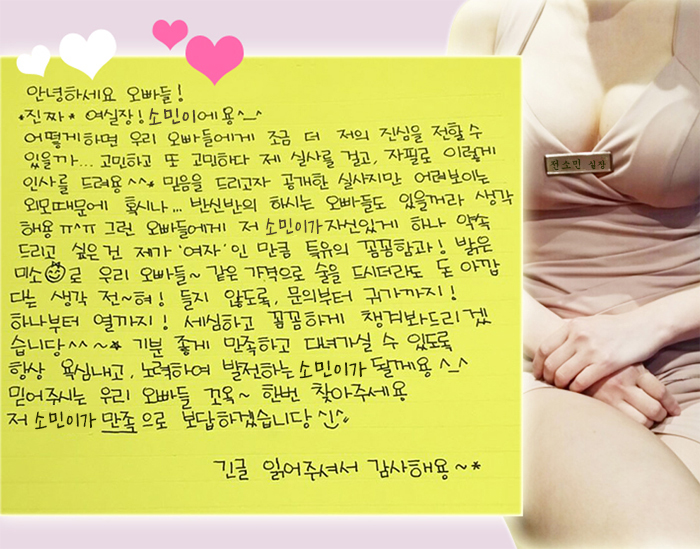 안녕하세요 오빠들!
*진짜* 여실장! 소민이에용^_^
어떻게하면 우리 오빠들에게 조금 더 저의 진심을 전할 수
있을까... 고민하고 또 고민하다 제 실사를 걸고, 자필로 이렇게
인사를 드려용^^* 믿음을 드리고자 공개한 실사지만 어려보이는
외모때문에 혹시나... 반신반의 하시는 오빠들도 있을꺼라 생각
해용 ㅠ^ㅠ 그런 오빠들에게 저 소민이가 자신있게 하나 약속
드리고 싶은건 제가 '여자' 인 만큼 특유의 꼼꼼함과! 밝은
미소로 우리 오빠들~ 같은 가격으로 술을 드시더라도 돈 아깝
다는 생각 전~혀! 들지 않도록, 문의부터 귀가까지!
하나부터 열까지! 세심하고 꼼꼼하게 챙겨봐드리겠
습니당^^~* 기분 좋게 만족하고 대녀가실 수 있도록
항상 욕심내고, 노력하여 발전하는 소민이가 될께용^_^
믿어주시는 우리 오빠들 꼬옥~ 한번 찾아주세용
저 소민이가 만족으로 보답하겠습니당
긴글 읽어주셔서 감사해용~*
전소민 실장